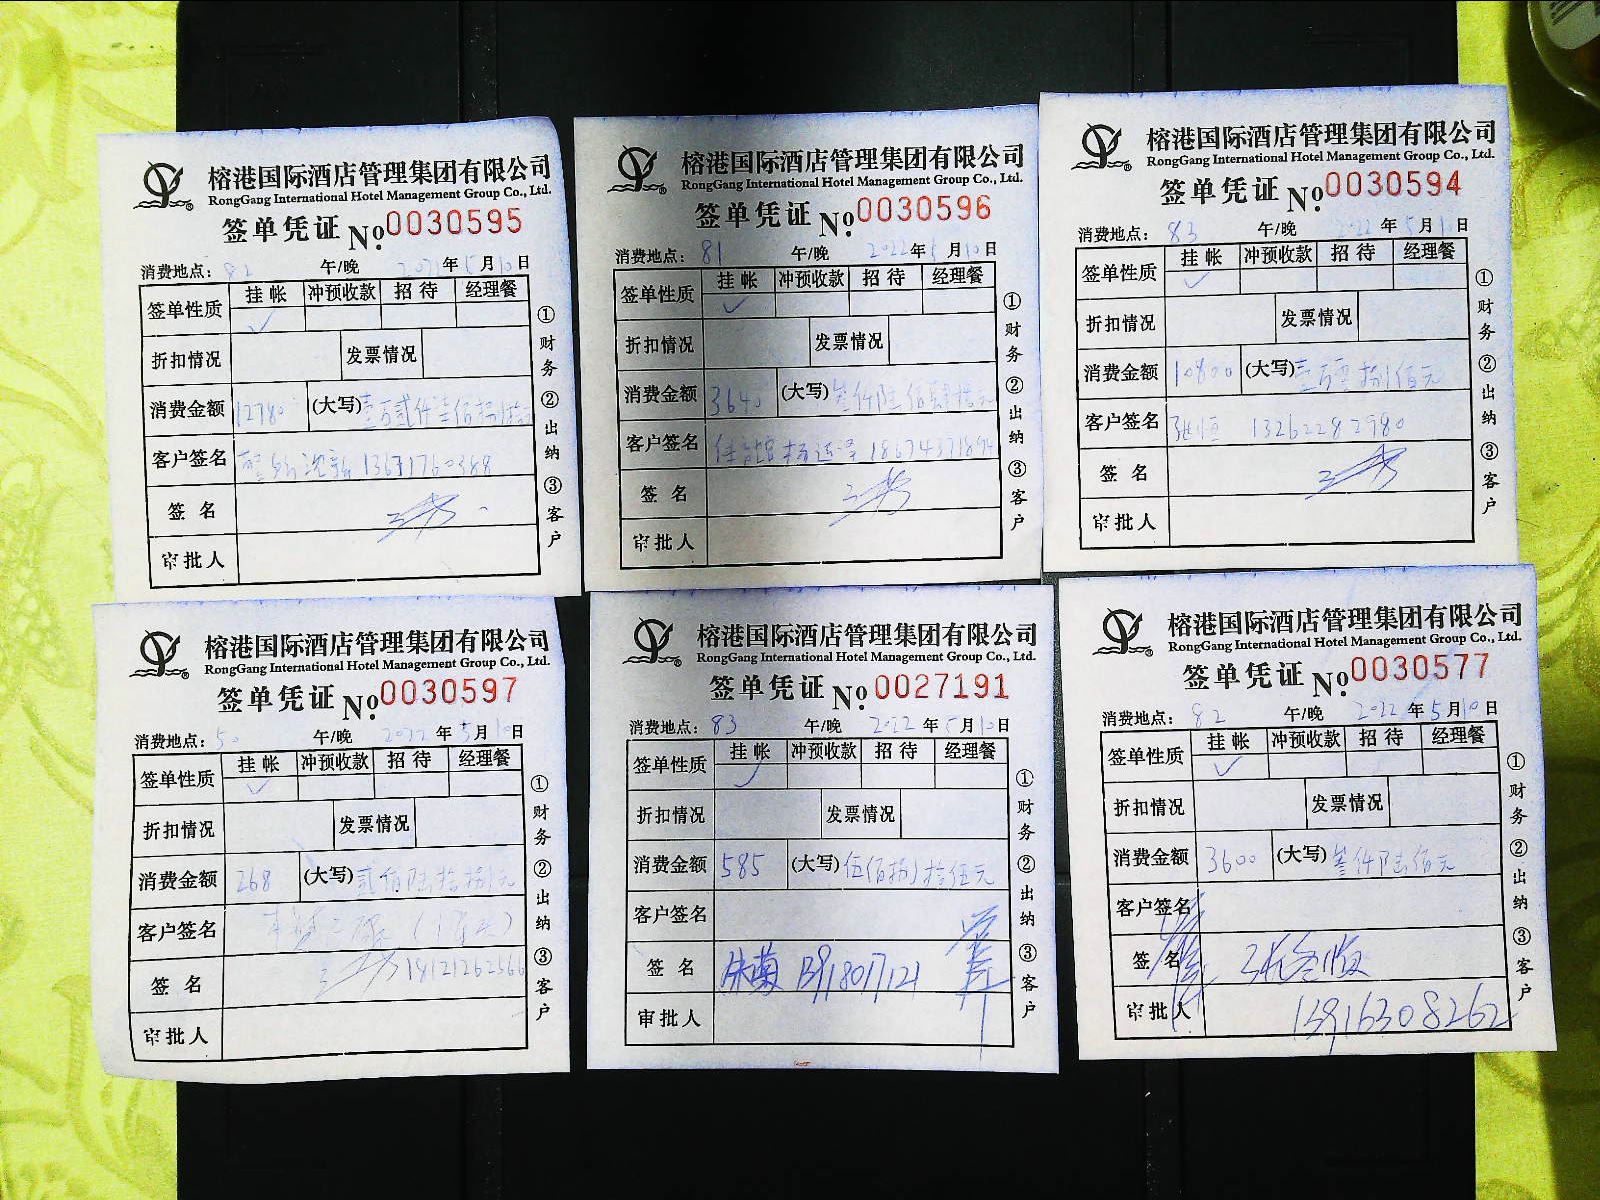 榕港国际酒店管理集团有限公司
RongGang International Hotel Management Group Co., Ltd.
签单凭证 No. 0030595
消费地点: 82 午/晚 2022年5月10日
签单性质 挂帐 冲预收款 招待 经理餐
✓
折扣情况 发票情况
消费金额 12780 (大写) 壹万贰仟柒佰捌拾元
客户签名 13671760388
签名
审批人
①财务 ②出纳 ③客户
榕港国际酒店管理集团有限公司
RongGang International Hotel Management Group Co., Ltd.
签单凭证 No. 0030596
消费地点: 81 午/晚 2022年5月10日
签单性质 挂帐 冲预收款 招待 经理餐
✓
折扣情况 发票情况
消费金额 3640 (大写) 叁仟陆佰肆拾元
客户签名
签名
审批人
①财务 ②出纳 ③客户
榕港国际酒店管理集团有限公司
RongGang International Hotel Management Group Co., Ltd.
签单凭证 No. 0030594
消费地点: 83 午/晚 2022年5月10日
签单性质 挂帐 冲预收款 招待 经理餐
✓
折扣情况 发票情况
消费金额 10800 (大写) 壹万零捌佰元
客户签名 张恒 13262282980
签名
审批人
①财务 ②出纳 ③客户
榕港国际酒店管理集团有限公司
RongGang International Hotel Management Group Co., Ltd.
签单凭证 No. 0030597
消费地点: 50 午/晚 2022年5月10日
签单性质 挂帐 冲预收款 招待 经理餐
✓
折扣情况 发票情况
消费金额 268 (大写) 贰佰陆拾捌元
客户签名
签名 18121262566
审批人
①财务 ②出纳 ③客户
榕港国际酒店管理集团有限公司
RongGang International Hotel Management Group Co., Ltd.
签单凭证 No. 0027191
消费地点: 83 午/晚 2022年5月10日
签单性质 挂帐 冲预收款 招待 经理餐
✓
折扣情况 发票情况
消费金额 585 (大写) 伍佰捌拾伍元
客户签名
签名 朱菊 13918017121
审批人
①财务 ②出纳 ③客户
榕港国际酒店管理集团有限公司
RongGang International Hotel Management Group Co., Ltd.
签单凭证 No. 0030577
消费地点: 82 午/晚 2022年5月10日
签单性质 挂帐 冲预收款 招待 经理餐
✓
折扣情况 发票情况
消费金额 3600 (大写) 叁仟陆佰元
客户签名
签名
审批人 13916308262
①财务 ②出纳 ③客户